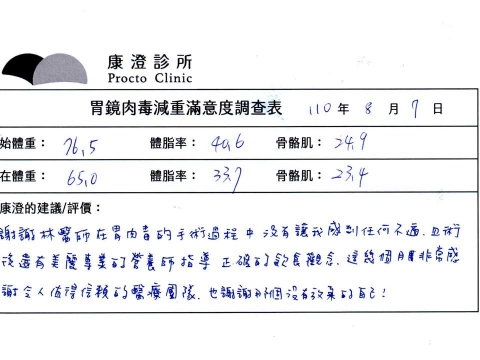 康澄診所
Procto Clinic
胃鏡肉毒減重滿意度調查表 110 年 8 月 7 日
始體重： 76.5 體脂率： 40.6 骨骼肌： 24.9
在體重： 65.0 體脂率： 33.7 骨骼肌： 23.4
康澄的建議/評價：
謝謝林醫師在胃肉毒的手術過程中沒有讓我感到任何不適，且術
後還有美麗專業的營養師指導正確的飲食觀念，這幾個月非常感
謝令人值得信賴的醫療團隊，也謝謝那個沒有放棄的自己！